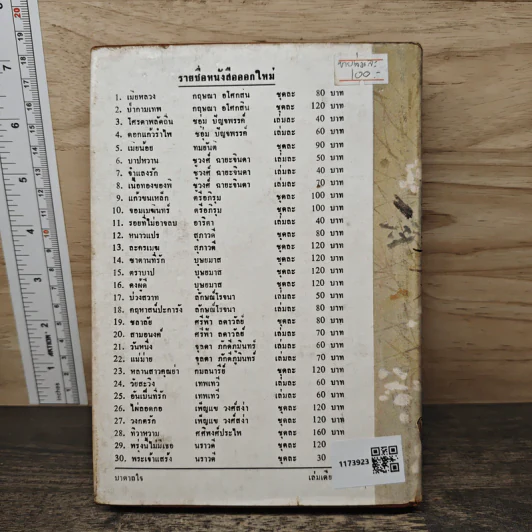 รายชื่อหนังสือออกใหม่
100.-
1. เมียหลวง กฤษณา อโศกสิน ชุดละ 80 บาท
2. น้ำกามเทพ กฤษณา อโศกสิน ชุดละ 120 บาท
3. ไศรดาพลัดถิ่น ชอุ่ม ปัญจพรรค์ เล่มละ 40 บาท
4. ดอกแก้วรำไพ ชอุ่ม ปัญจพรรค์ เล่มละ 60 บาท
5. เมียน้อย ทมยันตี ชุดละ 90 บาท
6. บาปหวาน ชูวงศ์ ฉายะจินดา เล่มละ 50 บาท
7. จำแลงรัก ชูวงศ์ ฉายะจินดา เล่มละ 40 บาท
8. เนื้อทองของพี่ ชูวงศ์ ฉายะจินดา เล่มละ 70 บาท
9. แก้วขนเหล็ก ตรีอภิรุม ชุดละ 100 บาท
10. จอมเมฆินทร์ ตรีอภิรุม ชุดละ 100 บาท
11. รอยที่ไม่อาจลบ อาริตา เล่มละ 40 บาท
12. หนาวแปร สุภาวดี ชุดละ 80 บาท
13. ละครเมฆ สุภาวดี ชุดละ 120 บาท
14. ซาตานที่รัก บุษยมาส ชุดละ 120 บาท
15. ตราบาป บุษยมาส ชุดละ 120 บาท
16. ดงผู้ดี บุษยมาส ชุดละ 120 บาท
17. บ่วงสวาท ลักษณ์โรจนา เล่มละ 50 บาท
18. คฤหาสน์ปะการัง ลักษณ์โรจนา ชุดละ 80 บาท
19. ชลาลัย ศรีฟ้า ลดาวัลย์ ชุดละ 80 บาท
20. สามอนงค์ ศรีฟ้า ลดาวัลย์ เล่มละ 70 บาท
21. วันหนึ่ง ชุลดา ภักดีภูมินทร์ เล่มละ 60 บาท
22. แม่ม่าย ชุลดา ภักดีภูมินทร์ เล่มละ 70 บาท
23. หลานสาวคุณย่า กมลนารีย์ ชุดละ 120 บาท
24. วัยสะวิง เทพเทวี เล่มละ 60 บาท
25. อันเป็นที่รัก เทพเทวี เล่มละ 60 บาท
26. ไผ่ลอดกอ เพ็ญแข วงศ์สง่า ชุดละ 120 บาท
27. วงกตรัก เพ็ญแข วงศ์สง่า ชุดละ 120 บาท
28. ทิวาหวาม ศศิพงศ์ประไพ ชุดละ 160 บาท
29. พรุ่งนี้ไม่มีเธอ นราวดี ชุดละ 120
30. พระเจ้าแสร้ง นราวดี ชุดละ 30
1173923
บาดาลใจ เล่มเดีย